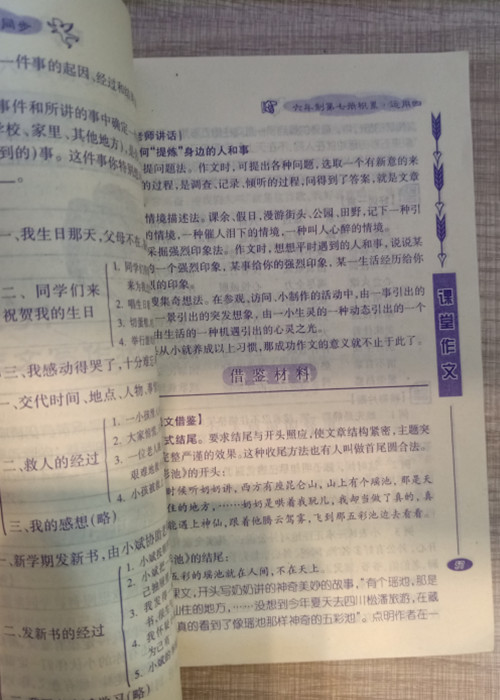 同步
一件事的起因、经过和
事件和所讲的事中确定
学校、家里、其他地方)
到的)事。这件事你特别
一、我生日那天,父母不在
二、同学们来
祝贺我的生日
1. 同学们
来为
2. 唱生日
3. 切蛋糕
4. 举行
三、我感动得哭了,十分难
一、交代时间、地点、人物、事
二、救人的经过
1. 一小孩
2. 大家
3. 一位老
艰难地
4. 小孩被
三、我的感想(略)
一、新学期发新书,由小斌协助
二、发新书的经过
1. 小斌
2. 小斌把
己地
3. 我发
书,很
4. 我怀
为己有
5. 小斌的
学习(略)
六年制第七册积累·运用
老师讲话】
何“提炼”身边的人和事
提问题法。作文时,可提出各种问题,选取一个有新意的来
的过程,是调查、记录、倾听的过程,问得到了答案,就是文章
情境描述法。课余、假日、漫游街头、公园、田野,记下一种引
的情境,一种催人泪下的情境,一种叫人心醉的情境。
采掘强烈印象法。作文时,想想平时遇到的人和事,说说某
的一个强烈印象,某事给你的强烈印象,某一生活经历给你
的印象。
搜集奇想法。在参观、访问、小制作的活动中,由一事引出的
一景引出的突发想象,由一小生灵的一种动态引出的一个
由生活的一种机遇引出的心灵之光。
从小就养成以上习惯,那成功作文的意义就不止于此了。
借鉴材料
文借鉴】
式结尾。要求结尾与开头照应,使文章结构紧密,主题突
完整严谨的效果。这种收尾方法也有人叫做首尾圆合法。
彩池》的开头:
时候听奶奶讲,西方有座昆仑山,山上有个瑶池,那是天
住的地方,……奶奶是哄着我玩儿,我却当做了真的,真
能遇上神仙,跟着他腾云驾雾,飞到那五彩池边去看看。
池》的结尾:
五彩的瑶池就在人间,不在天上。
课文,开头写奶奶讲的神奇美妙的故事,“有个瑶池,那是
仙住的地方,……没想到今年夏天去四川松潘旅游,在藏
真的看到了像瑶池那样神奇的五彩池”。点明作者在一
课堂作文